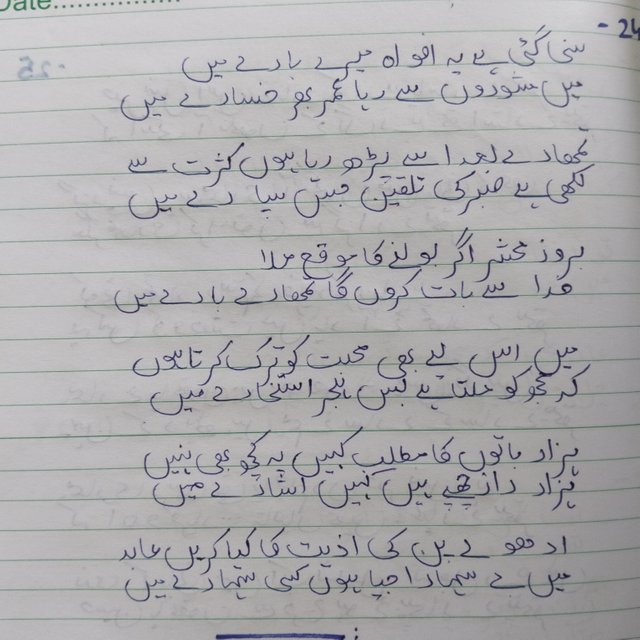 Date...............
24-
سنی گئی ہے یہ افواہ میرے بارے میں
میں مشوروں سے رہا عمر بھر خسارے میں
تمھارے بعد اسے پڑھ رہا ہوں کثرت سے
لکھی ہے صبر کی تلقین جس سپارے میں
بروز محشر اگر بولنے کا موقع ملا
خدا سے بات کروں گا تمھارے بارے میں
میں اس لیے بھی محبت کو ترک کرتا ہوں
کہ مجھ کو ملتا ہے بس ہجر استخارے میں
ہزار باتوں کا مطلب کہیں پہ کچھ بھی نہیں
ہزار راز چھپے ہیں کہیں اشارے میں
ادھورے پن کی اذیت کا کیا کریں عابد
میں بے سہارا جیا ہوں کسی سہارے میں